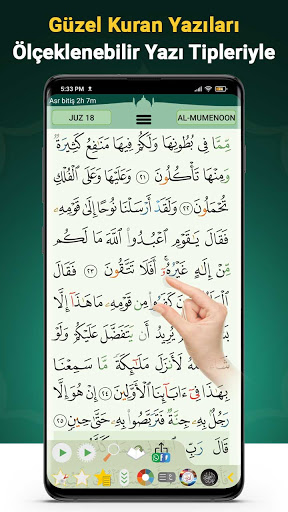 Güzel Kuran Yazıları
Ölçeklenebilir Yazı Tipleriyle
5:33 PM
Asr bitiş 2h 7m
JUZ 18
AL-MUMENOON
مِّمَّا فِي بُطُونِهَا وَلَكُمْ فِيهَا مَنَٰفِعُ كَثِيرَةٌ
وَمِنْهَا تَأْكُلُونَ ٢١ وَعَلَيْهَا وَعَلَى ٱلْفُلْكِ
تُحْمَلُونَ ٢٢ وَلَقَدْ أَرْسَلْنَا نُوحًا إِلَىٰ قَوْمِهِۦ
فَقَالَ يَٰقَوْمِ ٱعْبُدُوا۟ ٱللَّهَ مَا لَكُم
مِّنْ إِلَٰهٍ غَيْرُهُۥٓ ۖ أَفَلَا تَتَّقُونَ ٢٣ فَقَالَ
كَفَرُوا۟ مِن قَوْمِهِۦ مَا هَٰذَآ إِلَّا
يُرِيدُ أَن يَتَفَضَّلَ عَلَيْكُمْ وَلَوْ
ٱللَّهُ لَأَنزَلَ مَلَٰٓئِكَةً مَّا سَمِعْنَا
بِهَٰذَا فِىٓ ءَابَآئِنَا ٱلْأَوَّلِينَ ٢٤ إِنْ هُوَ إِلَّا
رَجُلٌۢ بِهِۦ جِنَّةٌ فَتَرَبَّصُوا۟ بِهِۦ حَتَّىٰ حِينٍ ٢٥
قَالَ رَبِّ